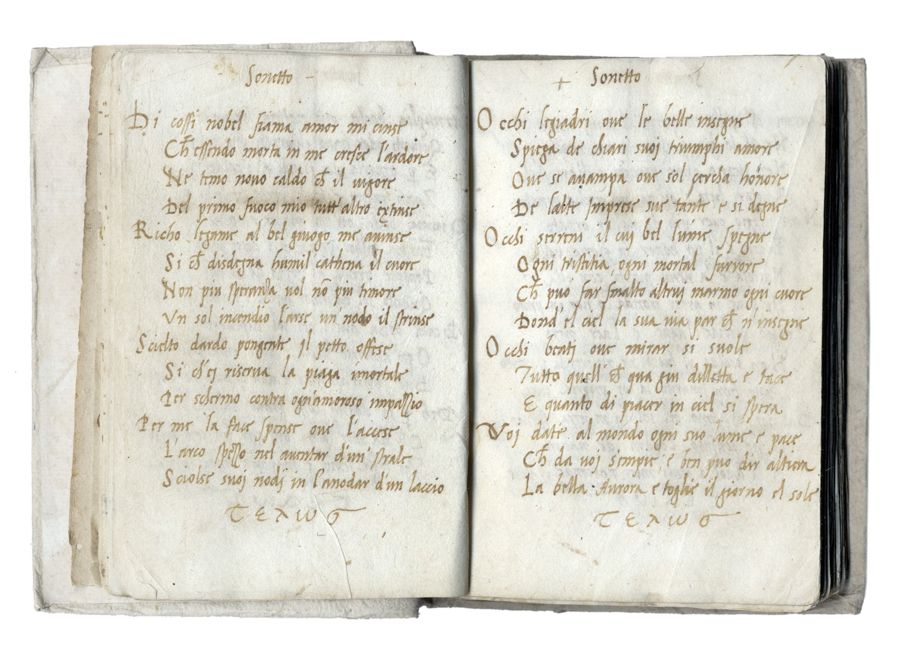 Sonetto
Di cossi nobel fiama amor mi cinse
Ch̃ essendo morta in me cresce l'ardore
Ne temo novo caldo ch̃ il vigore
Del primo fuoco mio tutt'altro extinse
Richo legame al bel giuogo me avinse
Si ch̃ disdegna humil cathena il cuore
Non piu speranza vol nõ piu tmore
Un sol incendio l'arse un nodo il strinse
Scielto dardo pongente il petto offese
Si ch'ei riserva la piaga imortale
Per schermo contra ogn'amoroso impaccio
Per me la face spense ove l'accese
L'arco spezzo nel aventar d'un strale
Sciolse suoi nodi in l'anodar d'un laccio
τελως
+ Sonetto
Occhi legiadri ove le belle insegne
Spiega de chiari suoi triumphi amore
Ove se avampa ove sol cercha honore
De l'alte imprese sue tante e si degne
Occhi sereni il cui bel lume spegne
Ogni tristitia, ogni mortal furrore
Ch̃ puo far smalto altrui marmo ogni cuore
Dond'el ciel la sua via par ch̃ n'insegne
Occhi beati ove mirar si suole
Tutto quell' ch̃ qua giu diletta e face
E quanto di piacer in ciel si spera
Voi date al mondo ogni suo lume e pace
Ch̃ da voi sempre, e ben puo dir altiera
La bella Aurora e toglie il giorno el sole
τελως